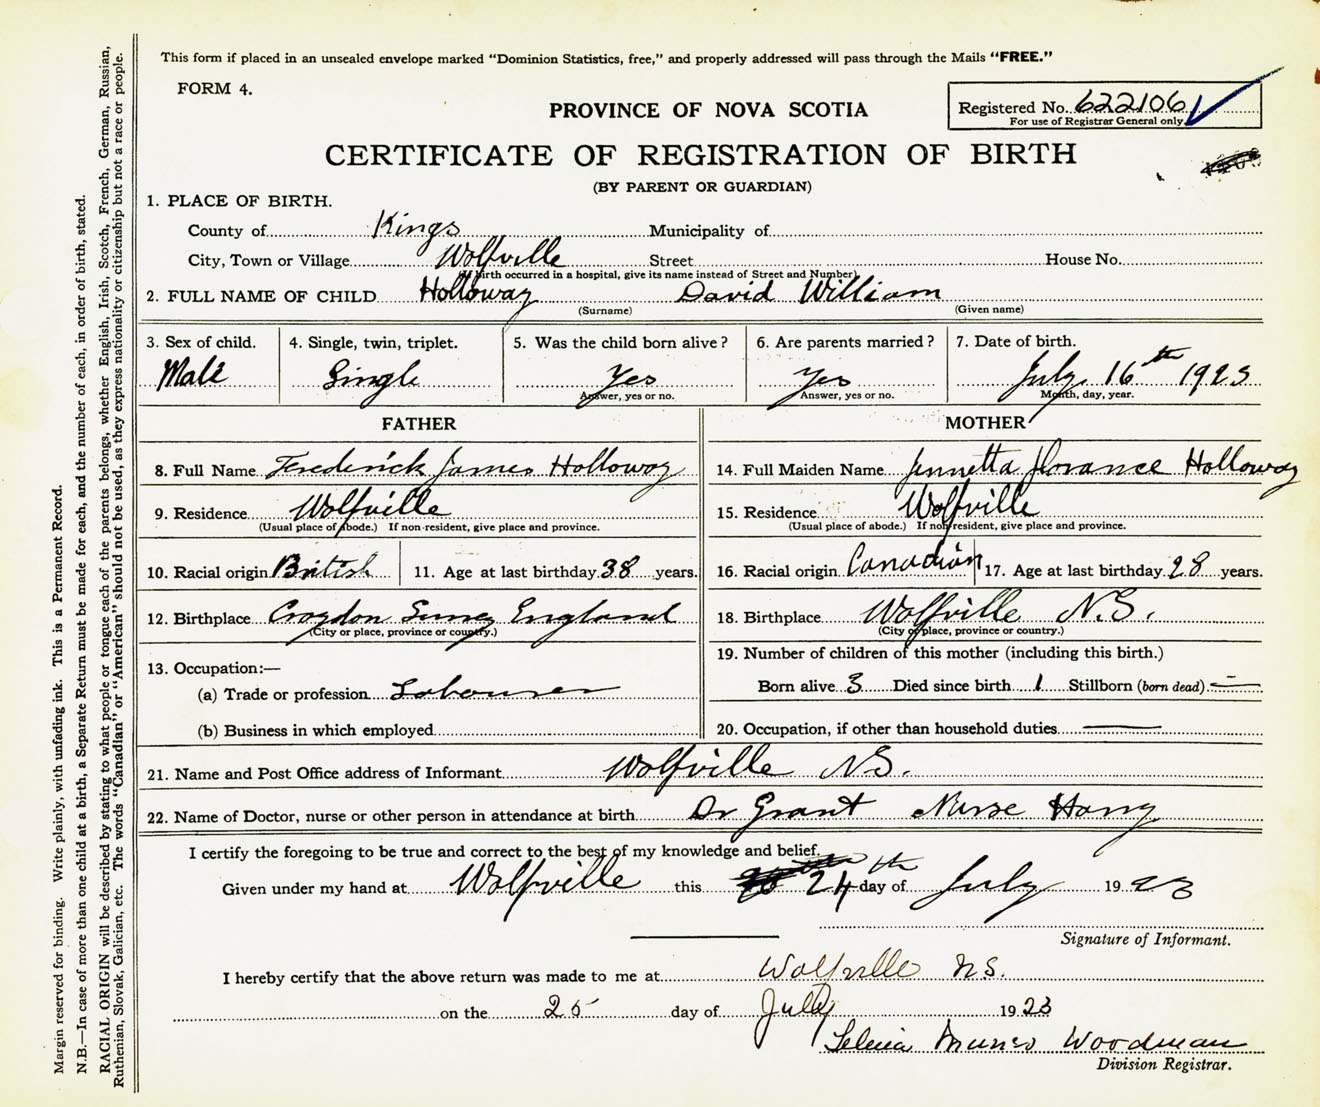 This form if placed in an unsealed envelope marked "Dominion Statistics, free," and properly addressed will pass through the Mails "FREE."
FORM 4.
PROVINCE OF NOVA SCOTIA
Registered No. 622106
For use of Registrar General only.
CERTIFICATE OF REGISTRATION OF BIRTH
(BY PARENT OR GUARDIAN)
1. PLACE OF BIRTH.
County of Kings Municipality of
City, Town or Village Wolfville Street House No.
(If birth occurred in a hospital, give its name instead of Street and Number)
2. FULL NAME OF CHILD Holloway David William
(Surname) (Given name)
3. Sex of child. 4. Single, twin, triplet. 5. Was the child born alive? 6. Are parents married? 7. Date of birth.
Male Single Yes Yes July 16th 1923
Answer, yes or no. Answer, yes or no. Month, day, year.
FATHER MOTHER
8. Full Name Frederick James Holloway 14. Full Maiden Name Jennetta Florance Holloway
9. Residence Wolfville 15. Residence Wolfville
(Usual place of abode.) If non-resident, give place and province. (Usual place of abode.) If non-resident, give place and province.
10. Racial origin British 11. Age at last birthday 38 years. 16. Racial origin Canadian 17. Age at last birthday 28 years.
12. Birthplace Croydon Surrey England 18. Birthplace Wolfville N.S.
(City or place, province or country.) (City or place, province or country.)
13. Occupation:— 19. Number of children of this mother (including this birth.)
(a) Trade or profession Labourer Born alive 3 Died since birth 1 Stillborn (born dead) —
(b) Business in which employed 20. Occupation, if other than household duties —
21. Name and Post Office address of Informant Wolfville NS.
22. Name of Doctor, nurse or other person in attendance at birth Dr Grant Nurse Harry
I certify the foregoing to be true and correct to the best of my knowledge and belief.
Given under my hand at Wolfville this 24th day of July 1923
Signature of Informant.
I hereby certify that the above return was made to me at Wolfville N.S.
on the 25 day of July 1923
Munro Woodman
Division Registrar.
Margin reserved for binding. Write plainly, with unfading ink. This is a Permanent Record.
N.B.—In case of more than one child at a birth, a Separate Return must be made for each, and the number of each, in order of birth, stated.
RACIAL ORIGIN will be described by stating to what people or tongue each of the parents belongs, whether English, Irish, Scotch, French, German, Russian,
Ruthenian, Slovak, Galician, etc. The words "Canadian" or "American" should not be used, as they express nationality or citizenship but not a race or people.